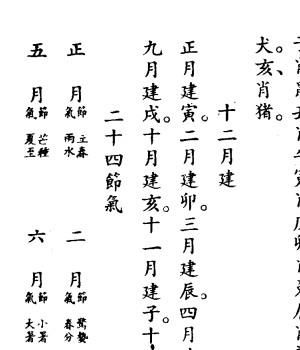 犬。亥肖猪。
十二月建
正月建寅。二月建卯。三月建辰。四月
九月建戌。十月建亥。十一月建子。十
二十四節氣
正月 節立春 氣雨水 二月 節驚蟄 氣春分
五月 節芒種 氣夏至 六月 節小暑 氣大暑